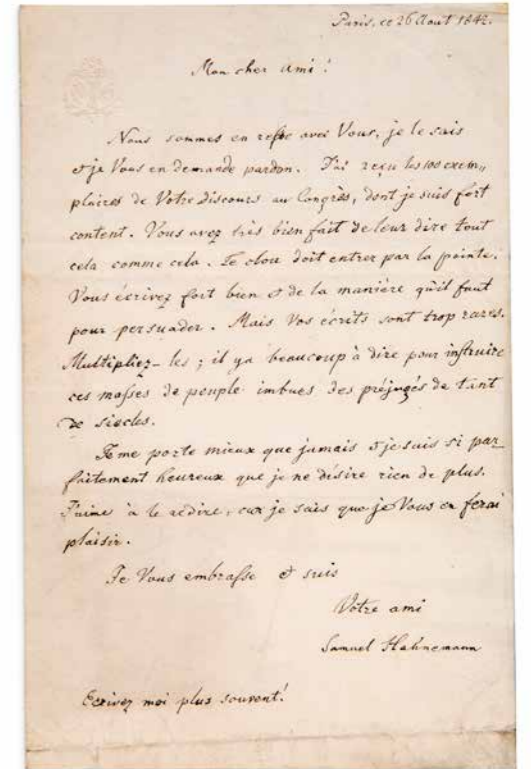 Paris, ce 26 Aout 1842.
Mon cher ami!
Nous sommes en reste avec Vous, je le sais
et je Vous en demande pardon. J'ai reçu les 100 exem„
plaires de Votre discours au Congrès, dont je suis fort
content. Vous avez très bien fait de leur dire tout
cela comme cela. Le clou doit entrer par la pointe.
Vous écrivez fort bien et de la manière qu'il faut
pour persuader. Mais Vos écrits sont trop rares.
Multipliez-les; il ya beaucoup à dire pour instruire
ces masses de peuple imbues des préjugés de tant
de siecles.
Je me porte mieux que jamais et je suis si par_
faitement heureux que je ne désire rien de plus.
J'aime à le redire, car je sais que je Vous en ferai
plaisir.
Je Vous embrasse et suis
Votre ami
Samuel Hahnemann
Ecrivez moi plus souvent!